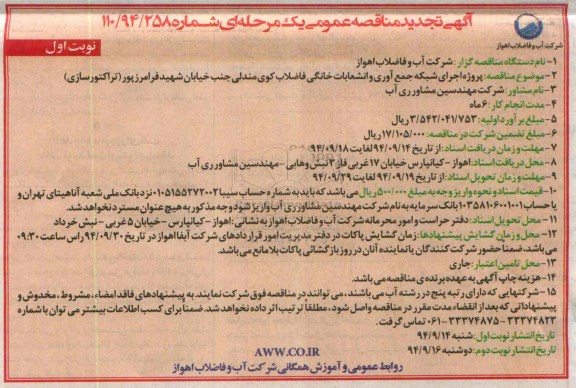 آگهی تجدید مناقصه عمومی یک مرحله‌ای شماره ۱۱۰/۹۴/۲۵۸
شرکت آب و فاضلاب اهواز
نوبت اول
۱- نام دستگاه مناقصه گزار: شرکت آب و فاضلاب اهواز
۲- موضوع مناقصه: پروژه اجرای شبکه جمع آوری و انشعابات خانگی فاضلاب کوی مندلی جنب خیابان شهید فرامرزپور (تراکتورسازی)
۳- نام مشاور: شرکت مهندسین مشاور ری آب
۴- مدت انجام کار: ۶ ماه
۵- مبلغ برآورد اولیه: ۳/۵۴۲/۰۴۱/۷۵۳ ریال
۶- مبلغ تضمین شرکت در مناقصه: ۱۷/۱۰۵/۰۰۰ ریال
۷- مهلت و زمان دریافت اسناد: از تاریخ ۹۴/۰۹/۱۴ لغایت ۹۴/۰۹/۱۸
۸- محل دریافت اسناد: اهواز - کیانپارس خیابان ۱۷ غربی فاز ۳ نبش وهابی - مهندسین مشاور ری آب
۹- مهلت و زمان تحویل اسناد: از تاریخ ۹۴/۰۹/۱۹ لغایت ۹۴/۰۹/۲۹
۱۰- قیمت اسناد و نحوه واریز وجه به مبلغ ۵۰۰/۰۰۰ ریال می باشد که باید به شماره حساب سیبا ۰۱۰۵۱۵۵۲۷۲۰۰۲ نزد بانک ملی شعبه آناهیتای تهران و
یا حساب ۱۰۳۵۸۱۰۶۰۰۱۰۰۱ بانک سرمایه به نام شرکت مهندسین مشاور ری آب واریز شود وجه مذکور به هیچ عنوان مسترد نخواهد شد.
۱۱- محل تحویل اسناد: دفتر حراست و امور محرمانه شرکت آب و فاضلاب اهواز به نشانی: اهواز - کیانپارس - خیابان ۵ غربی - نبش خرداد
۱۲- محل و زمان گشایش پیشنهادها: زمان گشایش پاکات در دفتر مدیریت امور قراردادهای شرکت آبفا اهواز در تاریخ ۹۴/۰۹/۳۰ راس ساعت ۰۹:۳۰
می باشد، ضمنا حضور شرکت کنندگان یا نماینده آنان در روز بازگشائی پاکات بلامانع می باشد.
۱۳- محل تامین اعتبار: جاری
۱۴- هزینه چاپ آگهی به عهده برنده ی مناقصه می باشد.
۱۵- شرکتهایی که دارای رتبه پنج در رشته آب می باشند، می توانند در مناقصه فوق شرکت نمایند. به پیشنهادهای فاقد امضاء، مشروط، مخدوش و
پیشنهاداتی که بعد از انقضاء مدت مقرر در مناقصه واصل شود، مطلقا ترتیب اثر داده نخواهد شد. ضمنا برای کسب اطلاعات بیشتر می توان با شماره
۳۳۳۷۴۸۲۳ - ۳۳۳۷۴۸۷۵-۰۶۱ تماس گرفت.
تاریخ انتشار نوبت اول: شنبه ۹۴/۹/۱۴
تاریخ انتشار نوبت دوم: دوشنبه ۹۴/۹/۱۶
AWW.CO.IR
روابط عمومی و آموزش همگانی شرکت آب و فاضلاب اهواز